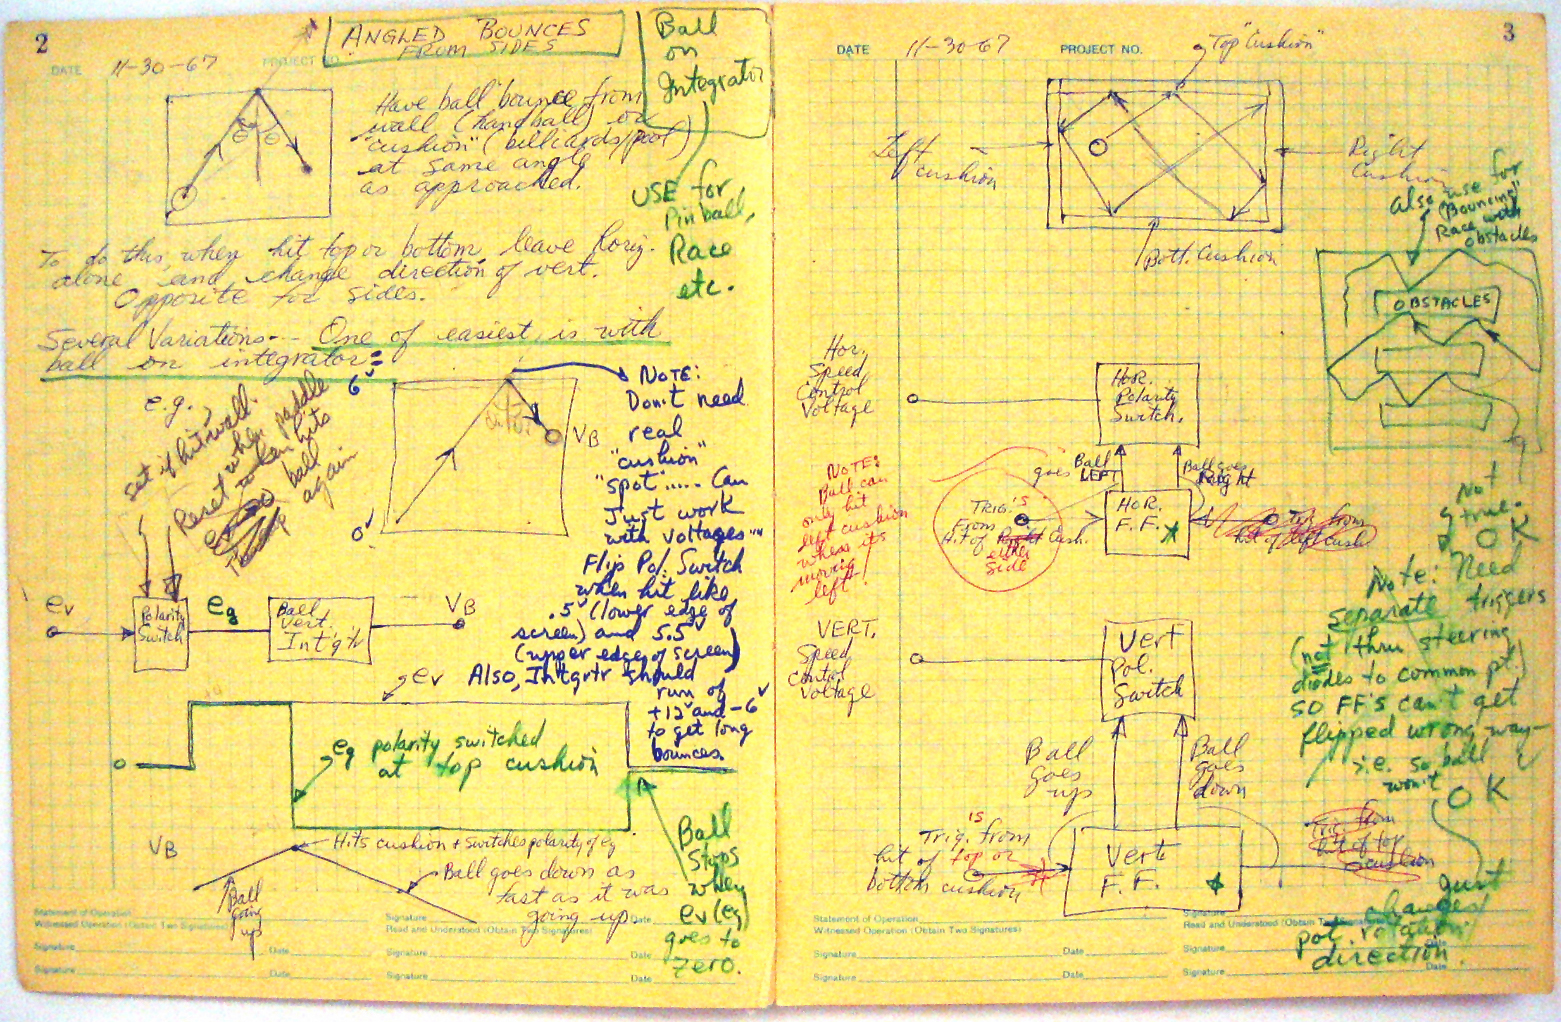 2
DATE 11-30-67 PROJECT NO.
ANGLED BOUNCES
FROM SIDES
Ball
on
Integrator
Have ball bounce from
wall (handball) or
"cushion" (billiards/pool)
at same angle
as approached.
θ θ
USE for
Pin ball,
Race
etc.
To do this, when hit top or bottom, leave horiz.
alone and change direction of vert.
Opposite for sides.
Several Variations--- One of easiest is with
ball on integrator:
e.g.
Set if hit wall.
Reset when paddle
hits
ball
again
6v
0v
VB
NOTE:
Don't need
real
"cushion"
"spot"..... Can
Just work
with voltages...
Flip Pol. Switch
when hit like
.5v (lower edge of
screen) and 5.5v
(upper edge of screen)
Also, Intgrtr should
run of
+12v and -6v
to get long
bounces.
ev
Polarity
Switch
eg
Ball
Vert.
Intgtr
VB
ev
0
eg polarity switched
at top cushion
VB
Hits cushion + switches polarity of eg
Ball
going
up
Ball goes down as
fast as it was
going up
Ball
Stops
when
ev (eg)
goes to
zero.
Statement of Operation
Witnessed Operation (Obtain Two Signatures)
Signature Date
Signature Date
Signature Date
Read and Understood (Obtain Two Signatures)
Signature Date
Signature Date
3
DATE 11-30-67 PROJECT NO.
Top "Cushion"
Left
cushion
Right
Cushion
Bott. Cushion
also use for
(Bouncing)
Race with
obstacles
OBSTACLES
Hor.
Speed
Control
Voltage
HOR.
Polarity
Switch.
goes Ball
LEFT
Ball goes
Right
NOTE:
Ball can
only hit
left cushion
when its
moving
left!
TRIG.'S
From
hit of Right Cush.
either
Side
HOR.
F.F.
trig from
hit of left cush
Not
true.
OK
Note: Need
separate triggers
(not thru steering
diodes to common pt.)
SO FF's can't get
flipped wrong way—
i.e. so ball
won't
OK
VERT.
Speed
Control
Voltage
Vert
Pol.
Switch
Ball
goes
up
Ball
goes
down
Trig. is from
hit of top or
bottom cushion
Vert
F.F.
Trig. from
hit of top
cushion
Just
changes
direction.
Statement of Operation
Witnessed Operation (Obtain Two Signatures)
Signature Date
Signature Date
Signature
Read and Understood (Obtain Two Signatures)
Signature Date
Signature Date